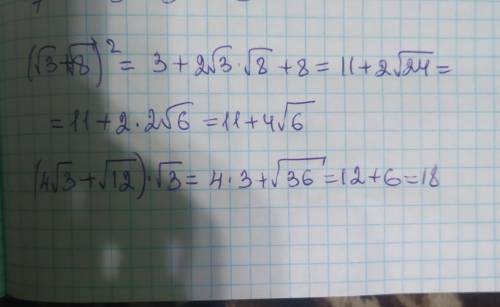 (√3+√8)² = 3 + 2√3·√8 + 8 = 11 + 2√24 =
= 11 + 2·2√6 = 11 + 4√6
(4√3 + √12)·√3 = 4·3 + √36 = 12 + 6 = 18